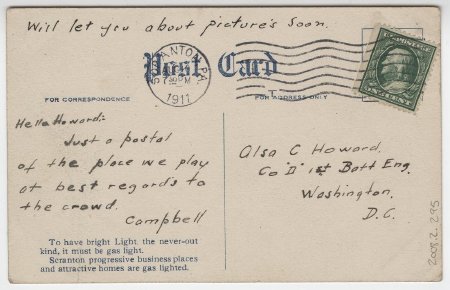 Will let you about picture's soon.
Post Card
SCRANTON, PA.
1911
U.S. POSTAGE
ONE CENT
FOR CORRESPONDENCE
FOR ADDRESS ONLY
Hello Howard:-
Just a postal
of the place we play
at best regards to
the crowd.
Campbell
To have bright Light, the never-out
kind, it must be gas light.
Scranton progressive business places
and attractive homes are gas lighted.
Alsa C Howard.
Co "D" 1st Batt Eng.
Washington.
D.C.
2008.2.295